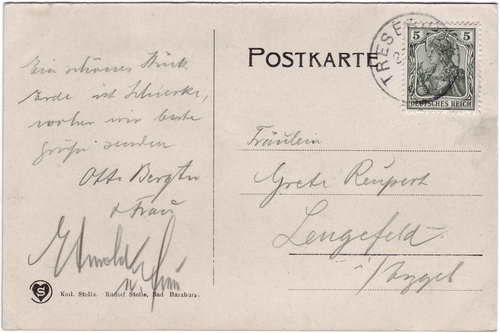 Ein schönes Stück
Erde ist Schierke,
woher wir beste
Grüße senden
Otto
+ Frau
Arnold
u. Frau
Knl. Stolle. Rudolf Stolle, Bad Harzburg.
POSTKARTE
TRESE
5 5
DEUTSCHES REICH
Fräulein
Grete Rupert
Lengefeld